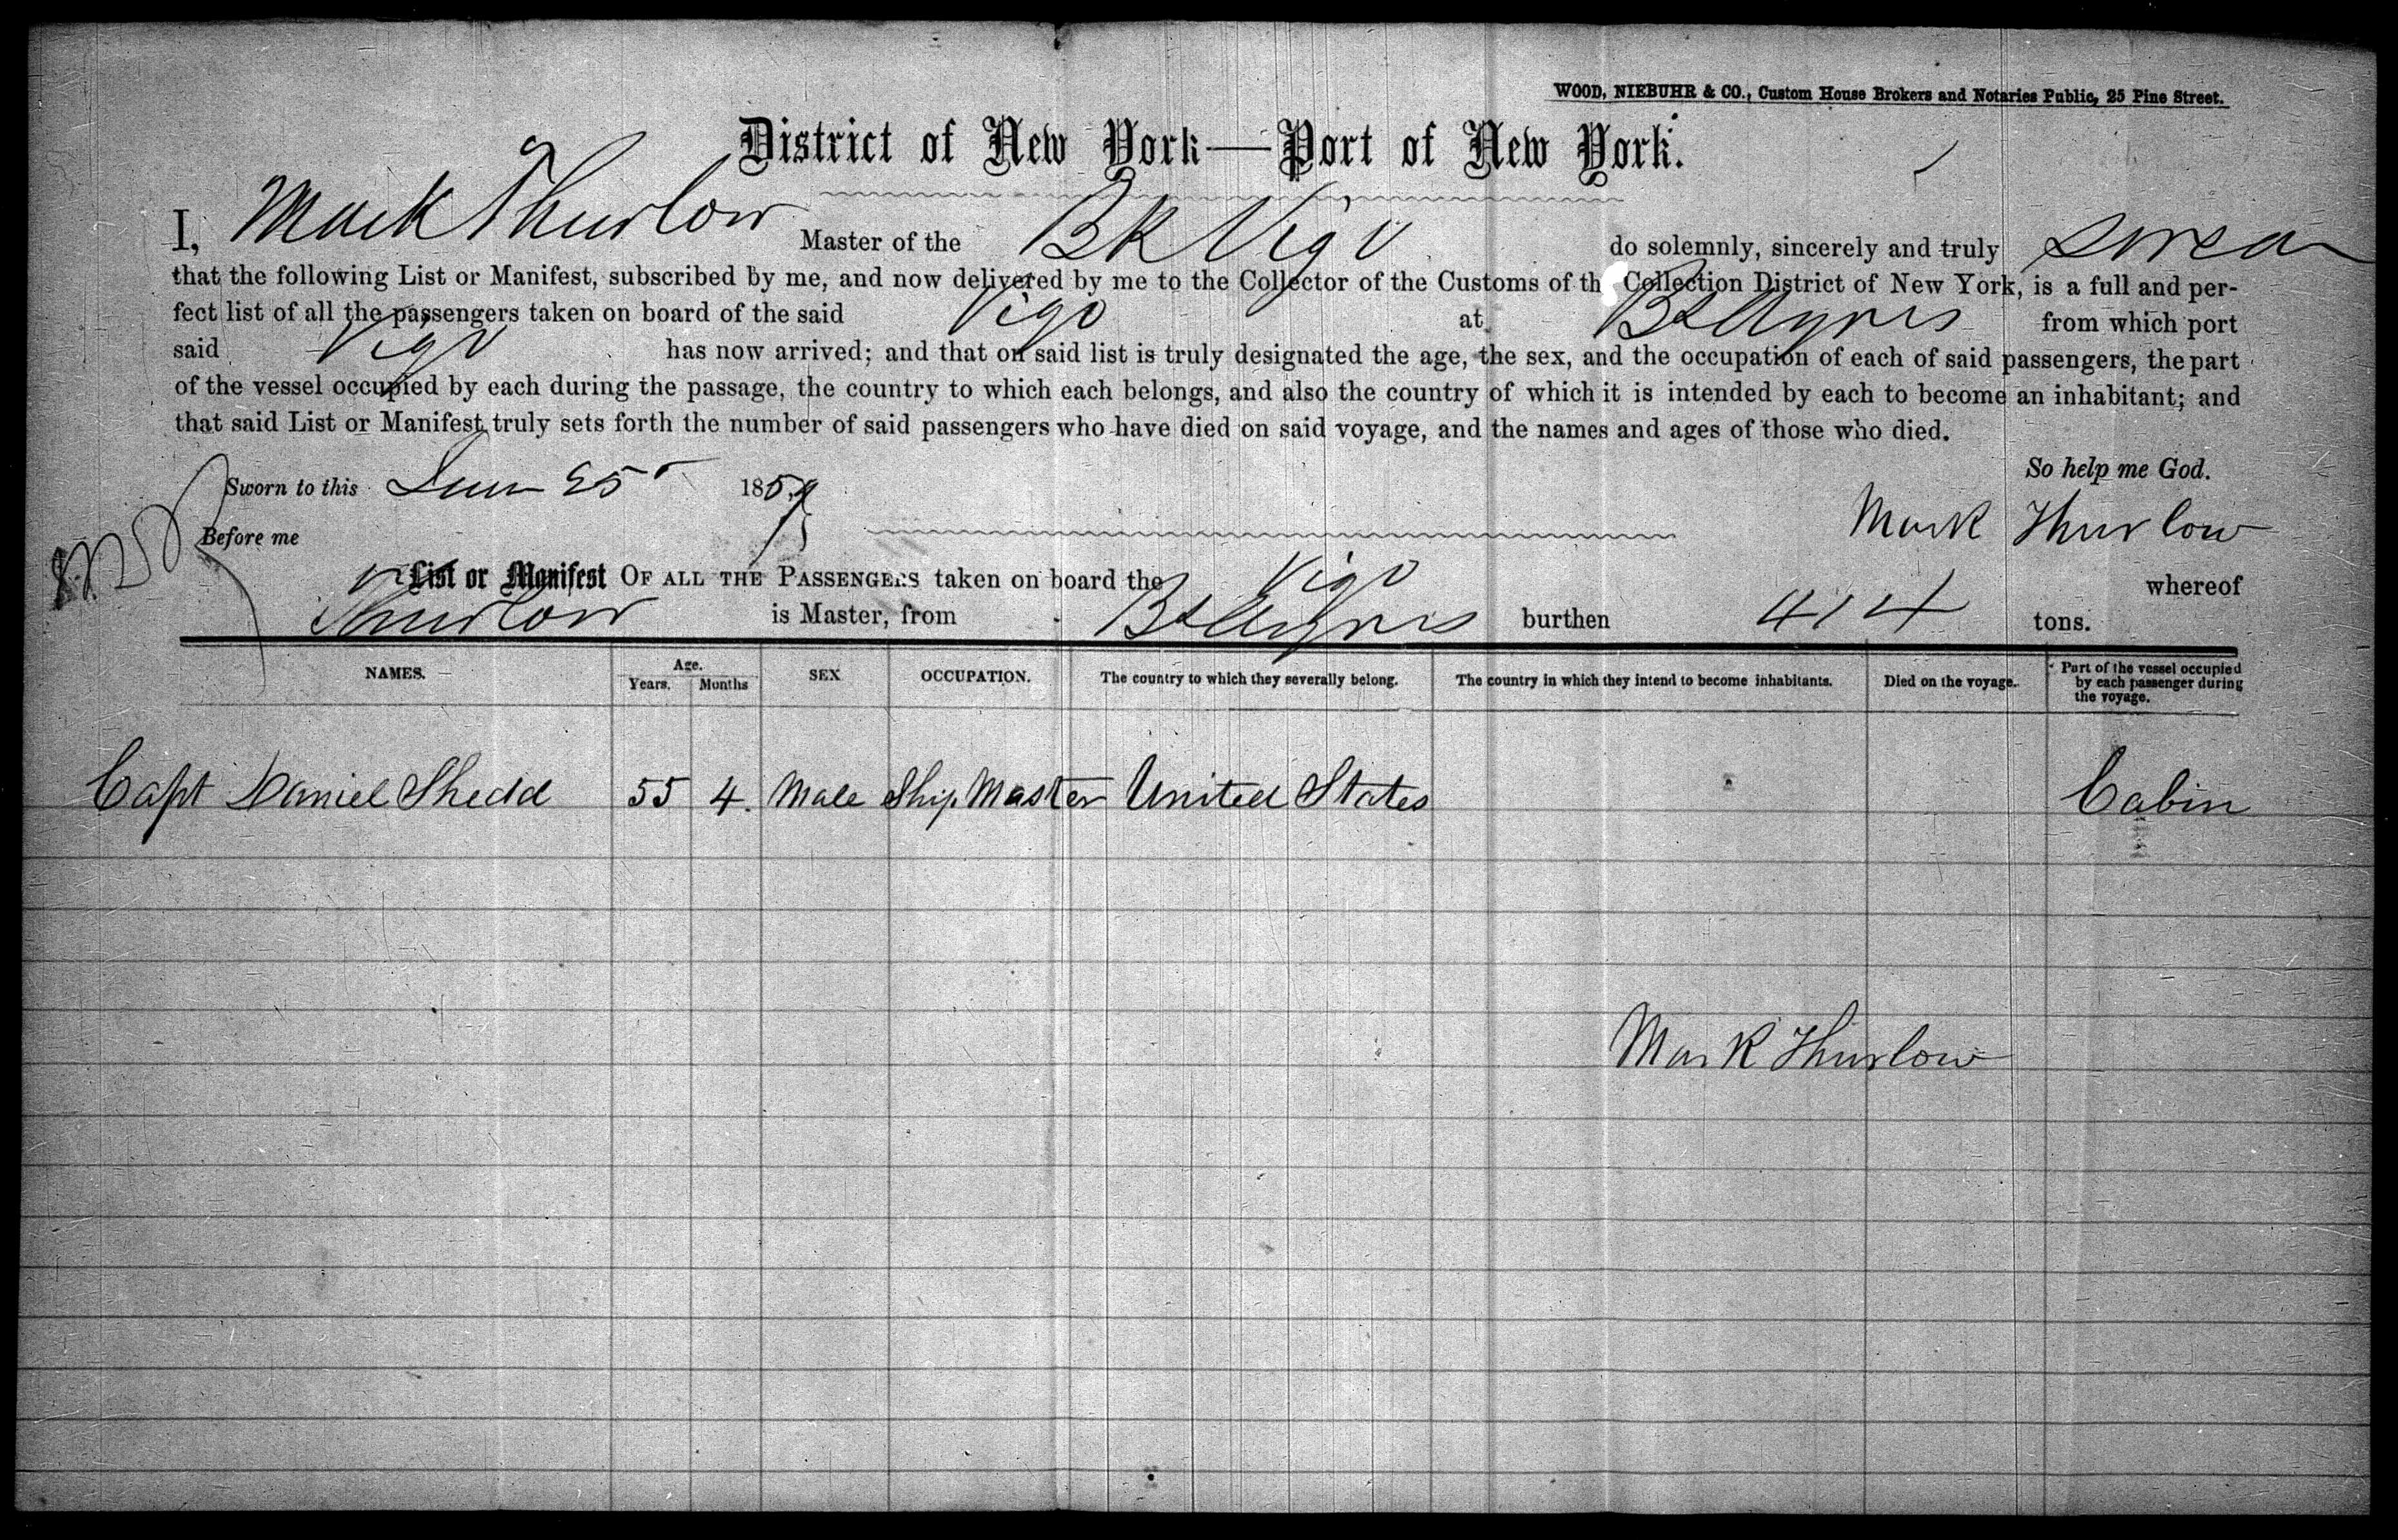 WOOD, NIEBUHR & CO., Custom House Brokers and Notaries Public, 25 Pine Street.
District of New York—Port of New York.
I, Mark Thurlow Master of the Bk Vigo do solemnly, sincerely and truly swear
that the following List or Manifest, subscribed by me, and now delivered by me to the Collector of the Customs of th Collection District of New York, is a full and per-
fect list of all the passengers taken on board of the said Vigo at Bs Ayres from which port
said Vigo has now arrived; and that on said list is truly designated the age, the sex, and the occupation of each of said passengers, the part
of the vessel occupied by each during the passage, the country to which each belongs, and also the country of which it is intended by each to become an inhabitant; and
that said List or Manifest truly sets forth the number of said passengers who have died on said voyage, and the names and ages of those who died.
So help me God.
Sworn to this 25 1859
Before me Mark Thurlow
List or Manifest OF ALL THE PASSENGERS taken on board the Vigo whereof
Thurlow is Master, from Bs Ayres burthen 414 tons.
NAMES. Age. Years. Months SEX OCCUPATION. The country to which they severally belong. The country in which they intend to become inhabitants. Died on the voyage. Part of the vessel occupied by each passenger during the voyage.
Capt Daniel Shedd 55 4. Male Ship Master United States Cabin
Mark Thurlow